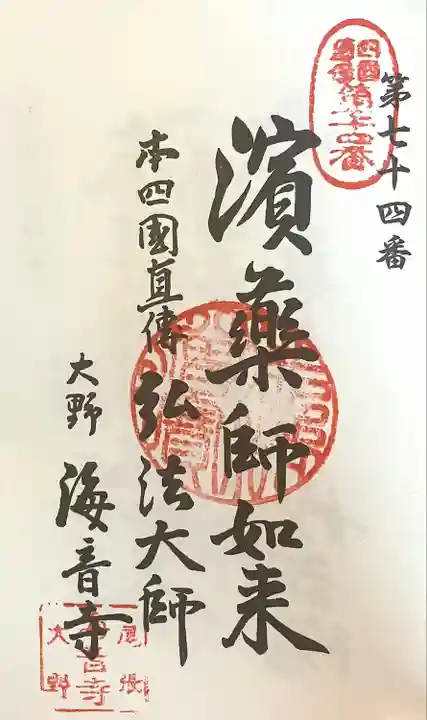 第七十四番
四國直傳第七十四番
濱薬師如来
本四國直傳 弘法大師
大野 海音寺
尾張
大野
音寺